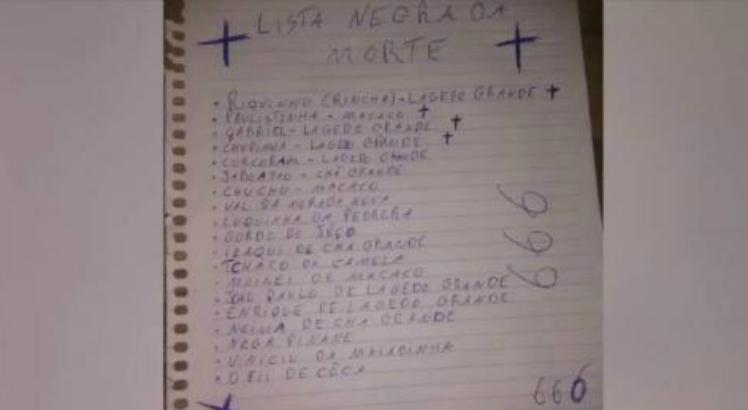 LISTA NEGRA DA
MORTE
• RIQUINHO (RINCHA) - LAGEDO GRANDE
• PAULISTINHA - MACACO
• GABRIEL - LAGEDO GRANDE
• LAGEDO GRANDE
• CORCORAM - LAGEDO GRANDE
• JABOATÃO - CHÃ GRANDE
• CHUCHO - MACACO
• VAL DA MORADA NOVA
• LUQUINHA DA PEDRERA
• GORDO DO
• IZAQUI DE CHA GRANDE
• TCHACO DA CAMELA
• DE MACACO
• JOÃO PAULO DE LAGEDO GRANDE
• ENRIQUE DE LAGEDO GRANDE
• NEIMA DE CHA GRANDE
• NEGA
• VINICIU DA
• O FII DE CÔCA
666
666